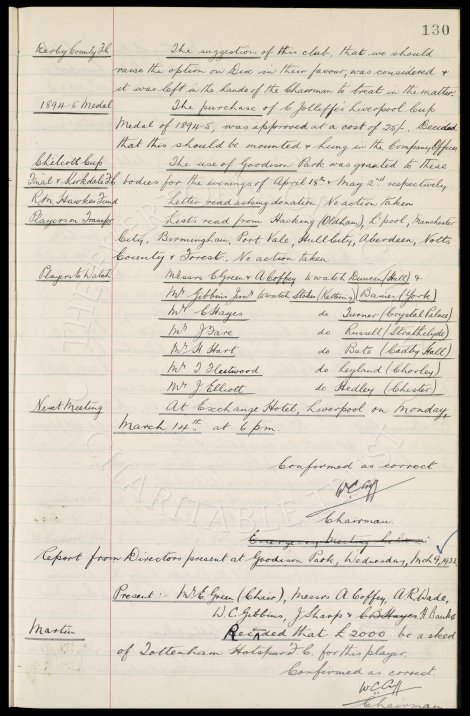 130
Derby County F.C. The suggestion of this club, that we should
raise the option on Dix in their favour, was considered &
it was left in the hands of the Chairman to treat in the matter.
1894-5 Medal The purchase of C Jolleffe's Liverpool Cup
Medal of 1894-5, was approved at a cost of 25/-. Decided
that this should be mounted & hung in the Company Offices
Chilcott Cup The use of Goodison Park was granted to these
Final & Kirkdale F.C. bodies for the evenings of April 18th & May 2nd respectively
R.M. Hawkes Fund Letter read asking donation. No action taken
Players on Transfer Lists read from Hacking (Oldham), L'pool, Manchester
City, Birmingham, Port Vale, Hull City, Aberdeen, Notts
County & Forest. No action taken
Players to Watch Messrs C Green & A Coffey to watch Duncan (Hull) &
Mr Gibbins Jnr to watch Stokes (Kettering) Baines (York)
Mr C Hayes do Turner (Crystal Palace)
Mr J Fare do Russell (Strathclyde)
Mr H Hart do Bate (Cadby Hall)
Mr T Fleetwood do Leyland (Chorley)
Mr J Elliott do Hedley (Chester)
Next Meeting At Exchange Hotel, Liverpool on Monday,
March 14th at 6 pm.
Confirmed as correct
W.C. Cuff
Chairman
Emergency Meeting held
Report from Directors present at Goodison Park, Wednesday, Mch 9, 1932
Present: Mr E Green (Chair), Messrs A Coffey, A R Wade,
W.C. Gibbins, J Sharp & C B Hayes H Banks
Martin Decided that £2000 be asked
of Tottenham Hotspur F.C. for this player.
Confirmed as correct.
W.C. Cuff
Chairman